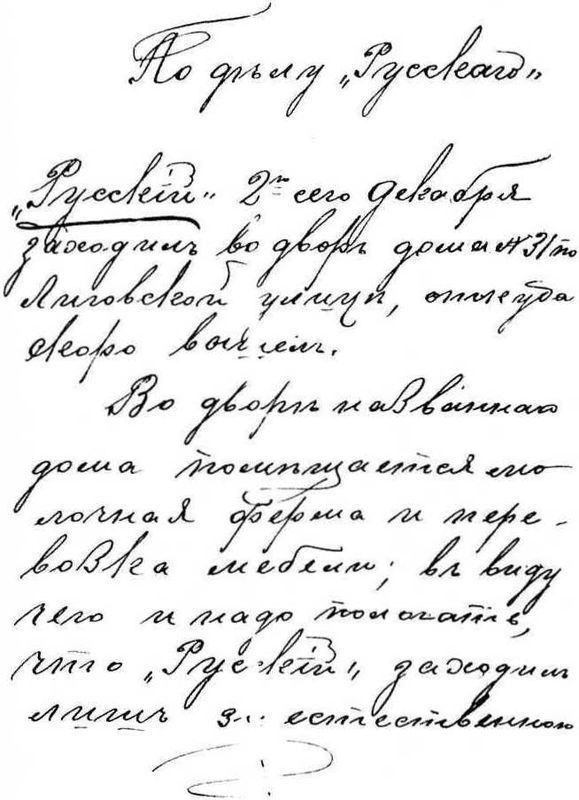 По дѣлу „Русскаго“
„Русскій“ 2го сего декабря
заходилъ во дворъ дома №31 по
Лиговской улицѣ, откуда
скоро вышелъ.
Во дворѣ названнаго
дома помѣщается мо
лочная ферма и пере-
возка мебели; въ виду
чего и надо полагать,
что „Русскій“, заходилъ
лишь за естественною